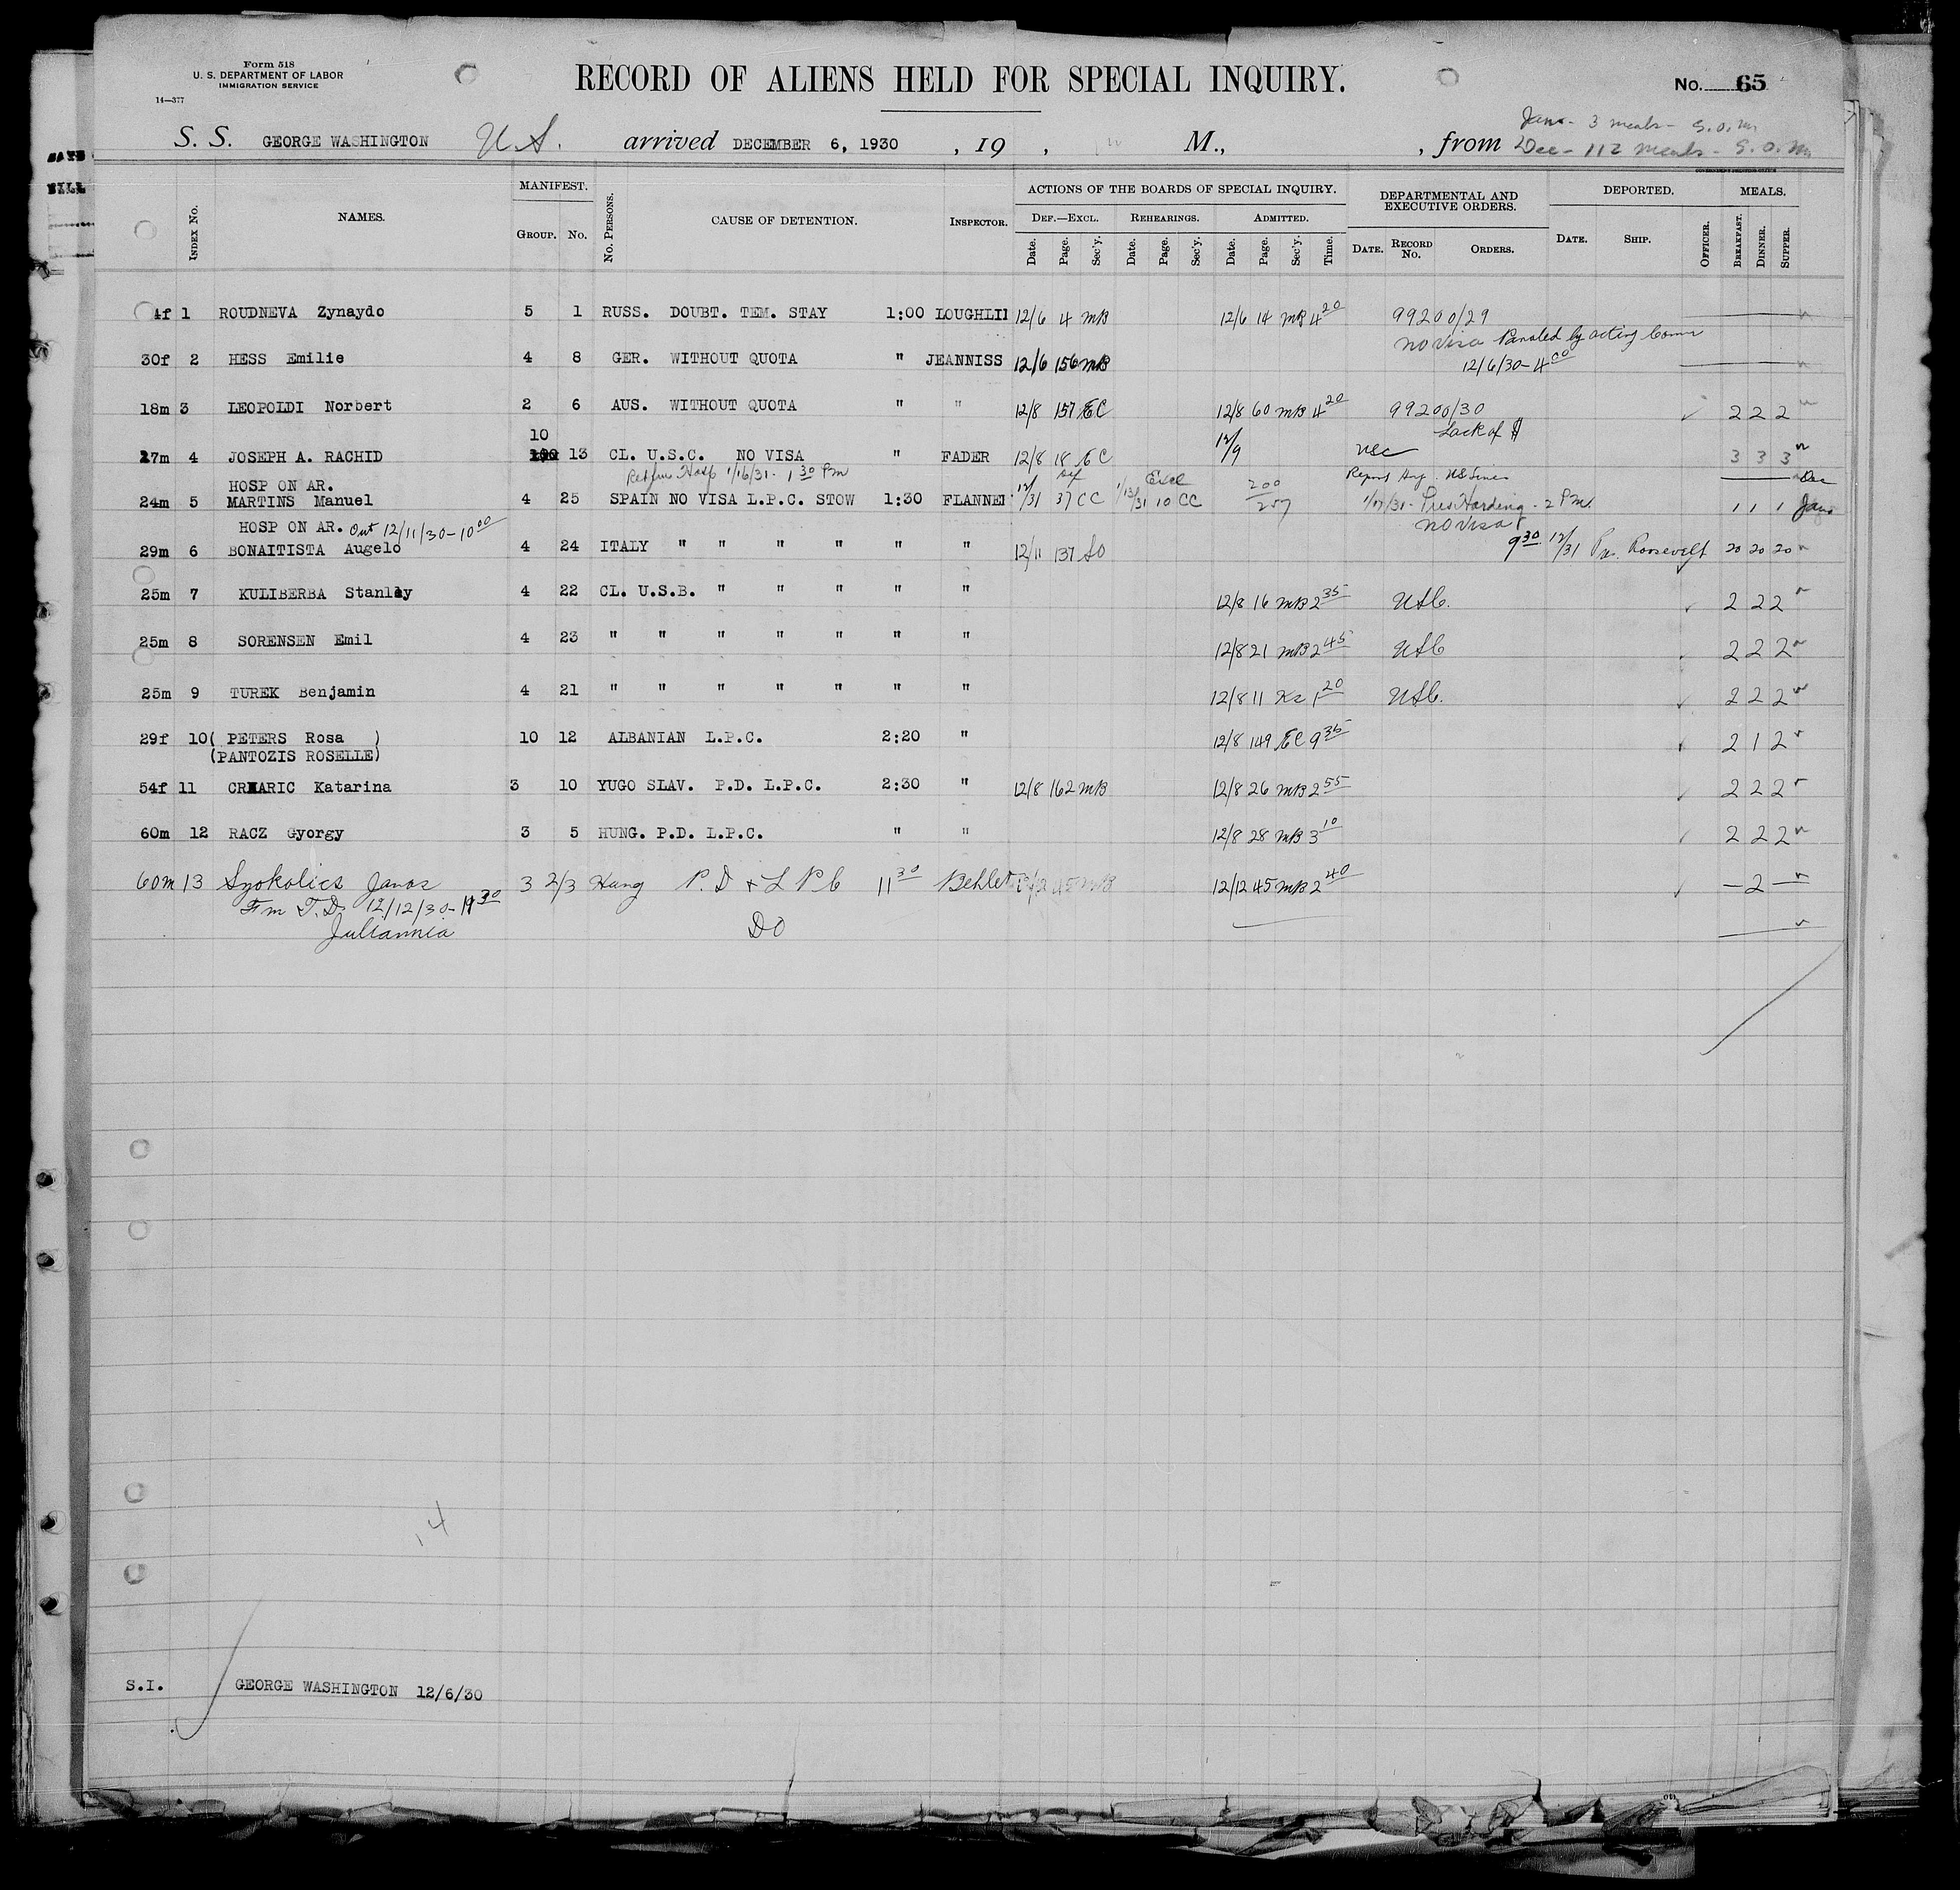 Form 518
U. S. DEPARTMENT OF LABOR
IMMIGRATION SERVICE
14—377
RECORD OF ALIENS HELD FOR SPECIAL INQUIRY.
No. 65
Jan. - 3 meals - S.O.M.
S. S. GEORGE WASHINGTON U.S. arrived DECEMBER 6, 1930 , 19 , M., , from Dec - 112 meals - S.O.M.
INDEX No. NAMES. MANIFEST. GROUP. No. No. PERSONS. CAUSE OF DETENTION. INSPECTOR. ACTIONS OF THE BOARDS OF SPECIAL INQUIRY. DEF.—EXCL. Date. Page. Sec'y. REHEARINGS. Date. Page. Sec'y. ADMITTED. Date. Page. Sec'y. Time. DEPARTMENTAL AND EXECUTIVE ORDERS. DATE. RECORD No. ORDERS. DEPORTED. DATE. SHIP. OFFICER. MEALS. BREAKFAST. DINNER. SUPPER.
4f 1 ROUDNEVA Zynaydo 5 1 RUSS. DOUBT. TEM. STAY 1:00 LOUGHLI 12/6 4 MB 12/6 14 MB 4 20 99200/29
no Visa by acting Comr
30f 2 HESS Emilie 4 8 GER. WITHOUT QUOTA " JEANNISS 12/6 156 MB 12/6/30 - 4 00
18m 3 LEOPOLDI Norbert 2 6 AUS. WITHOUT QUOTA " " 12/8 157 EC 12/8 60 MB 4 20 99200/30 2 2 2
Lack of $
10
27m 4 JOSEPH A. RACHID 100 13 CL. U.S.C. NO VISA " FADER 12/8 18 EC 12/9 USC 3 3 3
Ret fm Hosp 1/16/31 - 1 30 Pm
HOSP ON AR. Def Excl 200 U S Lines Dec
24m 5 MARTINS Manuel 4 25 SPAIN NO VISA L.P.C. STOW 1:30 FLANNE 12/31 37 CC 1/13/31 10 CC 257 1/17/31 - Pres Harding - 2 P M. 1 1 1 Jan.
HOSP ON AR. Out 12/11/30 - 10 00 no Visa
29m 6 BONAITISTA Augelo 4 24 ITALY " " " " " " 12/11 137 SO 9 30 12/31 Pr. Roosevelt 20 20 20
25m 7 KULIBERBA Stanley 4 22 CL. U.S.B. " " " " " 12/8 16 MB 2 35 USC. 2 2 2
25m 8 SORENSEN Emil 4 23 " " " " " " " 12/8 21 MB 2 45 USC 2 2 2
25m 9 TUREK Benjamin 4 21 " " " " " " " 12/8 11 1 20 USC. 2 2 2
29f 10 ( PETERS Rosa ) 10 12 ALBANIAN L.P.C. 2:20 " 12/8 149 EC 9 35 2 1 2
(PANTOZIS ROSELLE)
54f 11 CRMARIC Katarina 3 10 YUGO SLAV. P.D. L.P.C. 2:30 " 12/8 162 MB 12/8 26 MB 2 55 2 2 2
60m 12 RACZ Gyorgy 3 5 HUNG. P.D. L.P.C. " " 12/8 28 MB 3 10 2 2 2
60m 13 Szokolics Janos 3 2/3 Hung P. D & L P C 11 30 12/12 45 MB 12/12 45 MB 2 40 — 2 —
Fm T.D. 12/12/30 - 11 30
Juliannia DO
14
S.I. GEORGE WASHINGTON 12/6/30